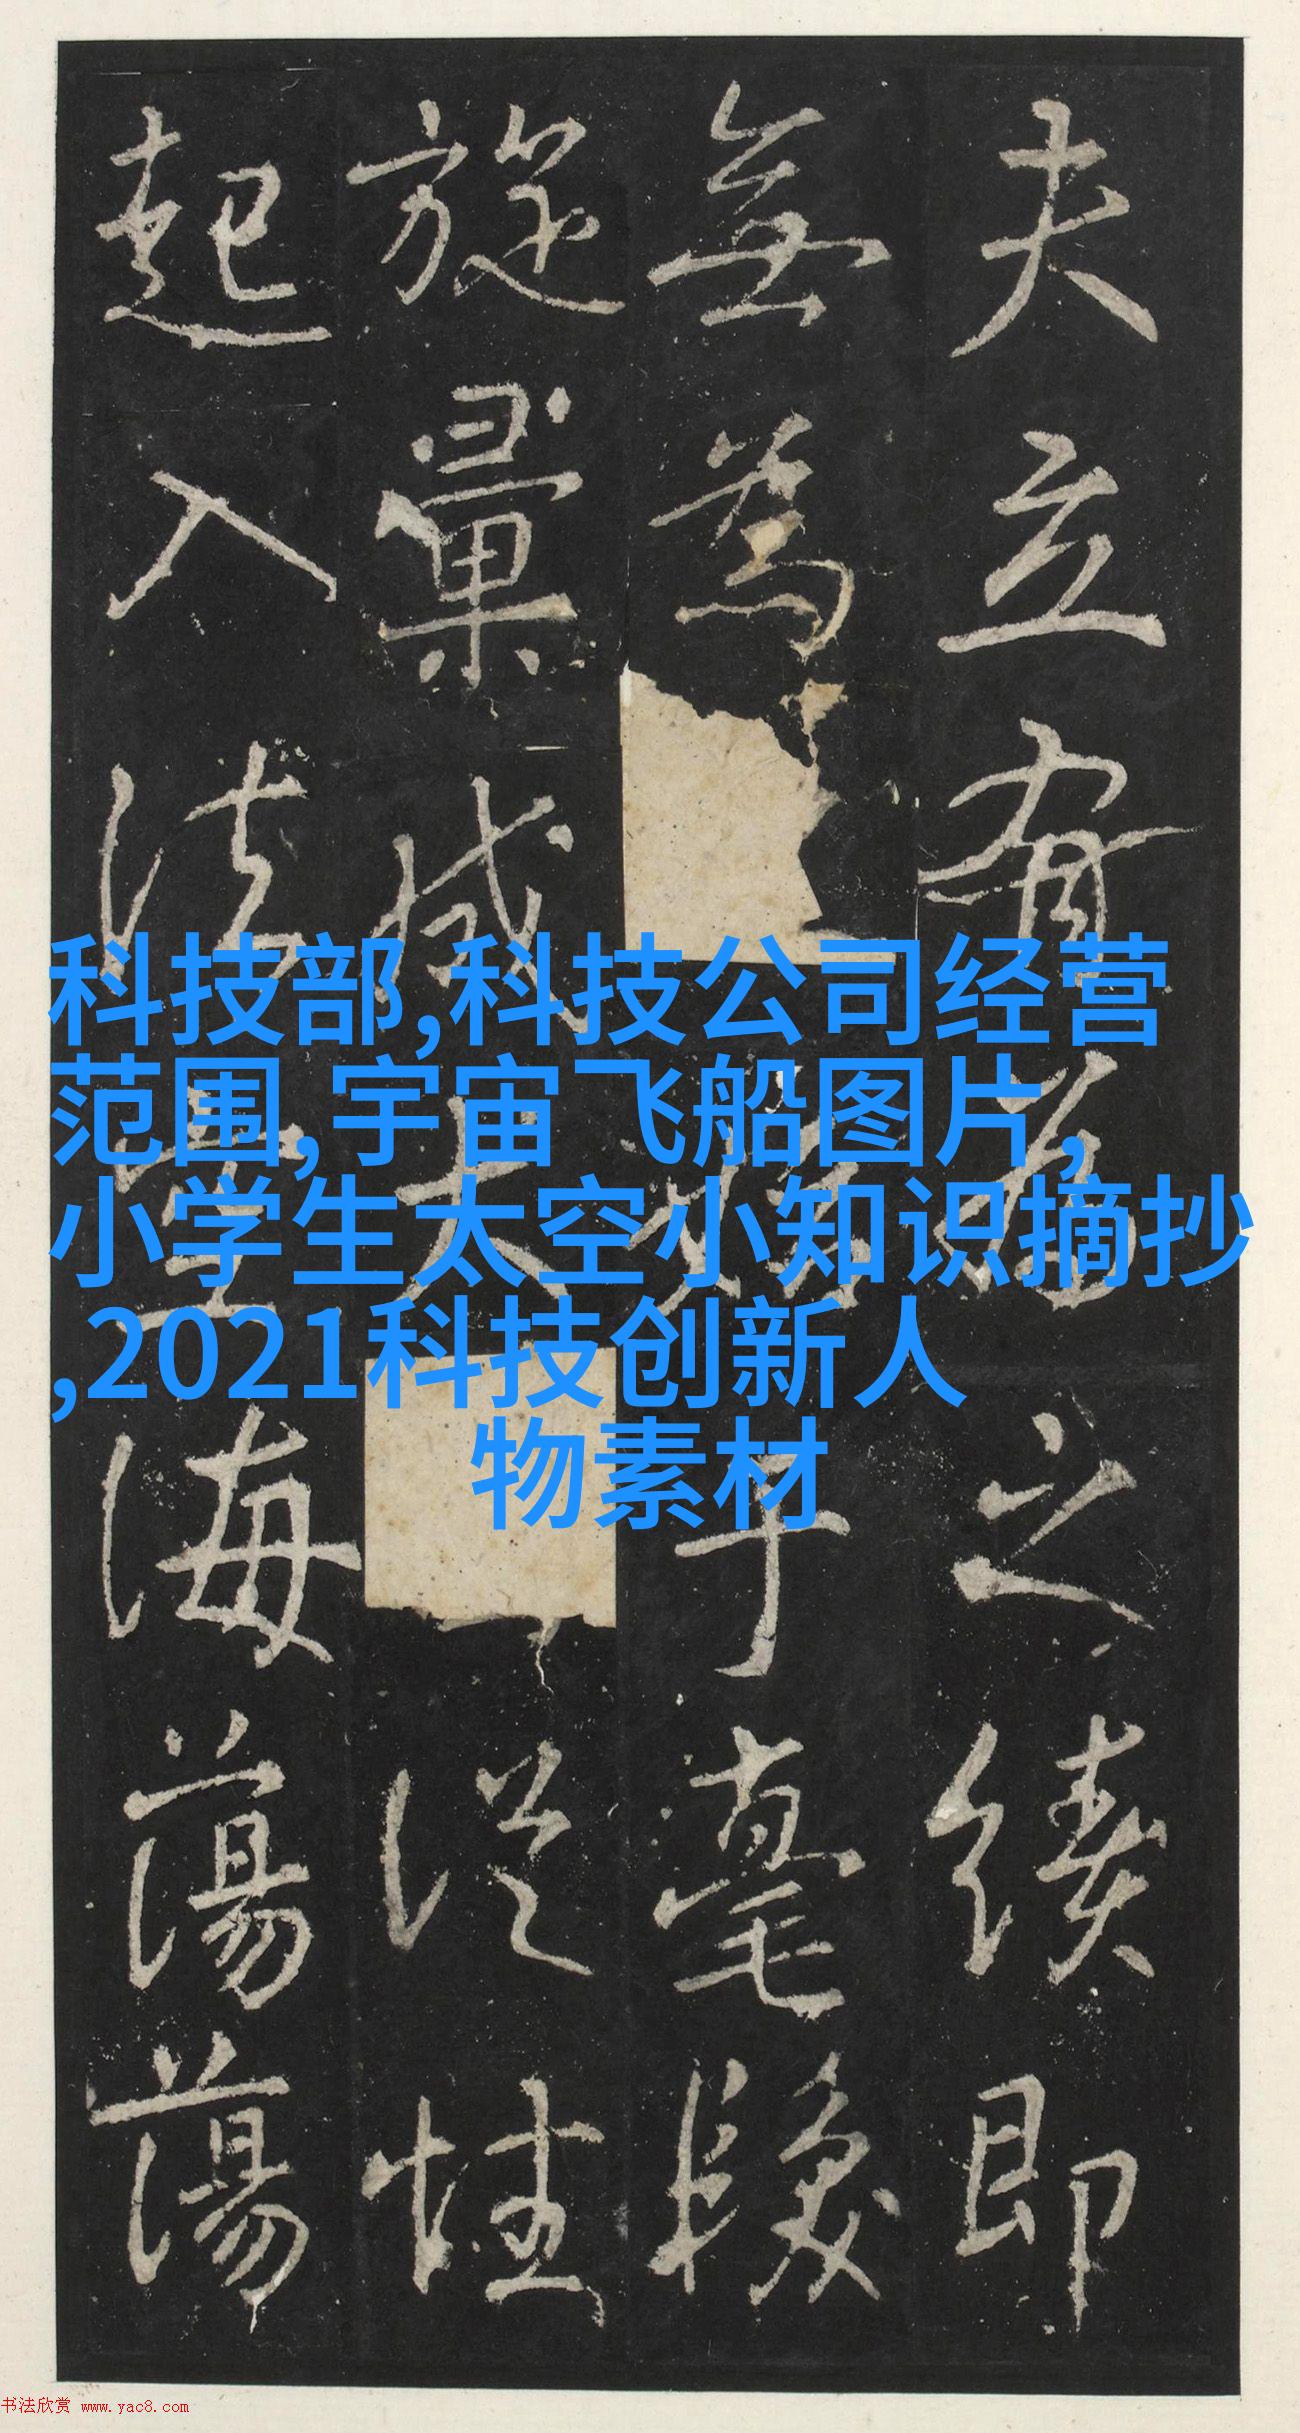 夫立有為之績即
無為始于毫
旋彙成大從性
起入法海蕩蕩
科技部,科技公司经营
范围,宇宙飞船图片,
小学生太空小知识摘抄
,2021科技创新人
物素材
书法欣赏 www.yac8.com